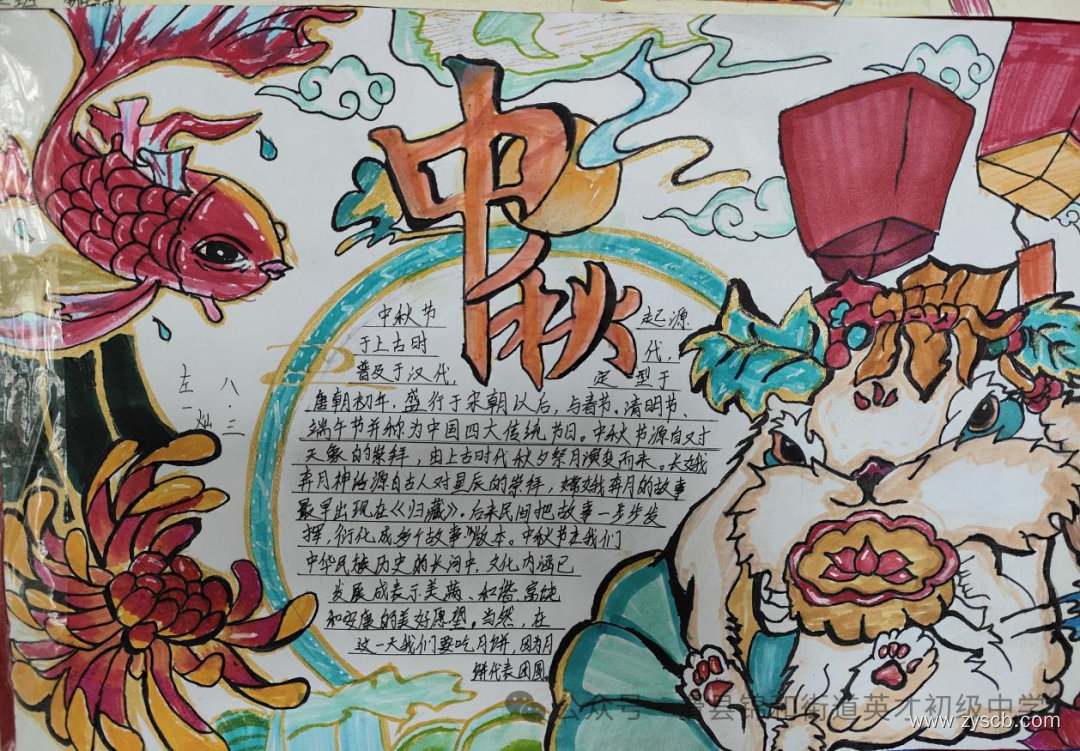 中秋
中秋节 起源
于上古时 代,
普及于汉代, 定型于
唐朝初年,盛行于宋朝以后,与春节、清明节、
端午节并称为中国四大传统节日。中秋节源自又寸
天象的崇拜,由上古时代秋夕祭月演变而来。长娥
奔月神话源自古人对星辰的崇拜,嫦娥奔月的故事
最早出现在《归藏》。后来民间把故事一步步发
挥,衍化成多个故事版本。中秋节在我们
中华民族历史的长河中,文化内涵已
发展成表示美满、和谐、富饶
和安康的美好愿望。当然,在
这一天我们要吃月饼,因为月
饼代表团圆。
八·三
左一灿
公众号 县锦和街道英才初级中学
www.zyscb.com